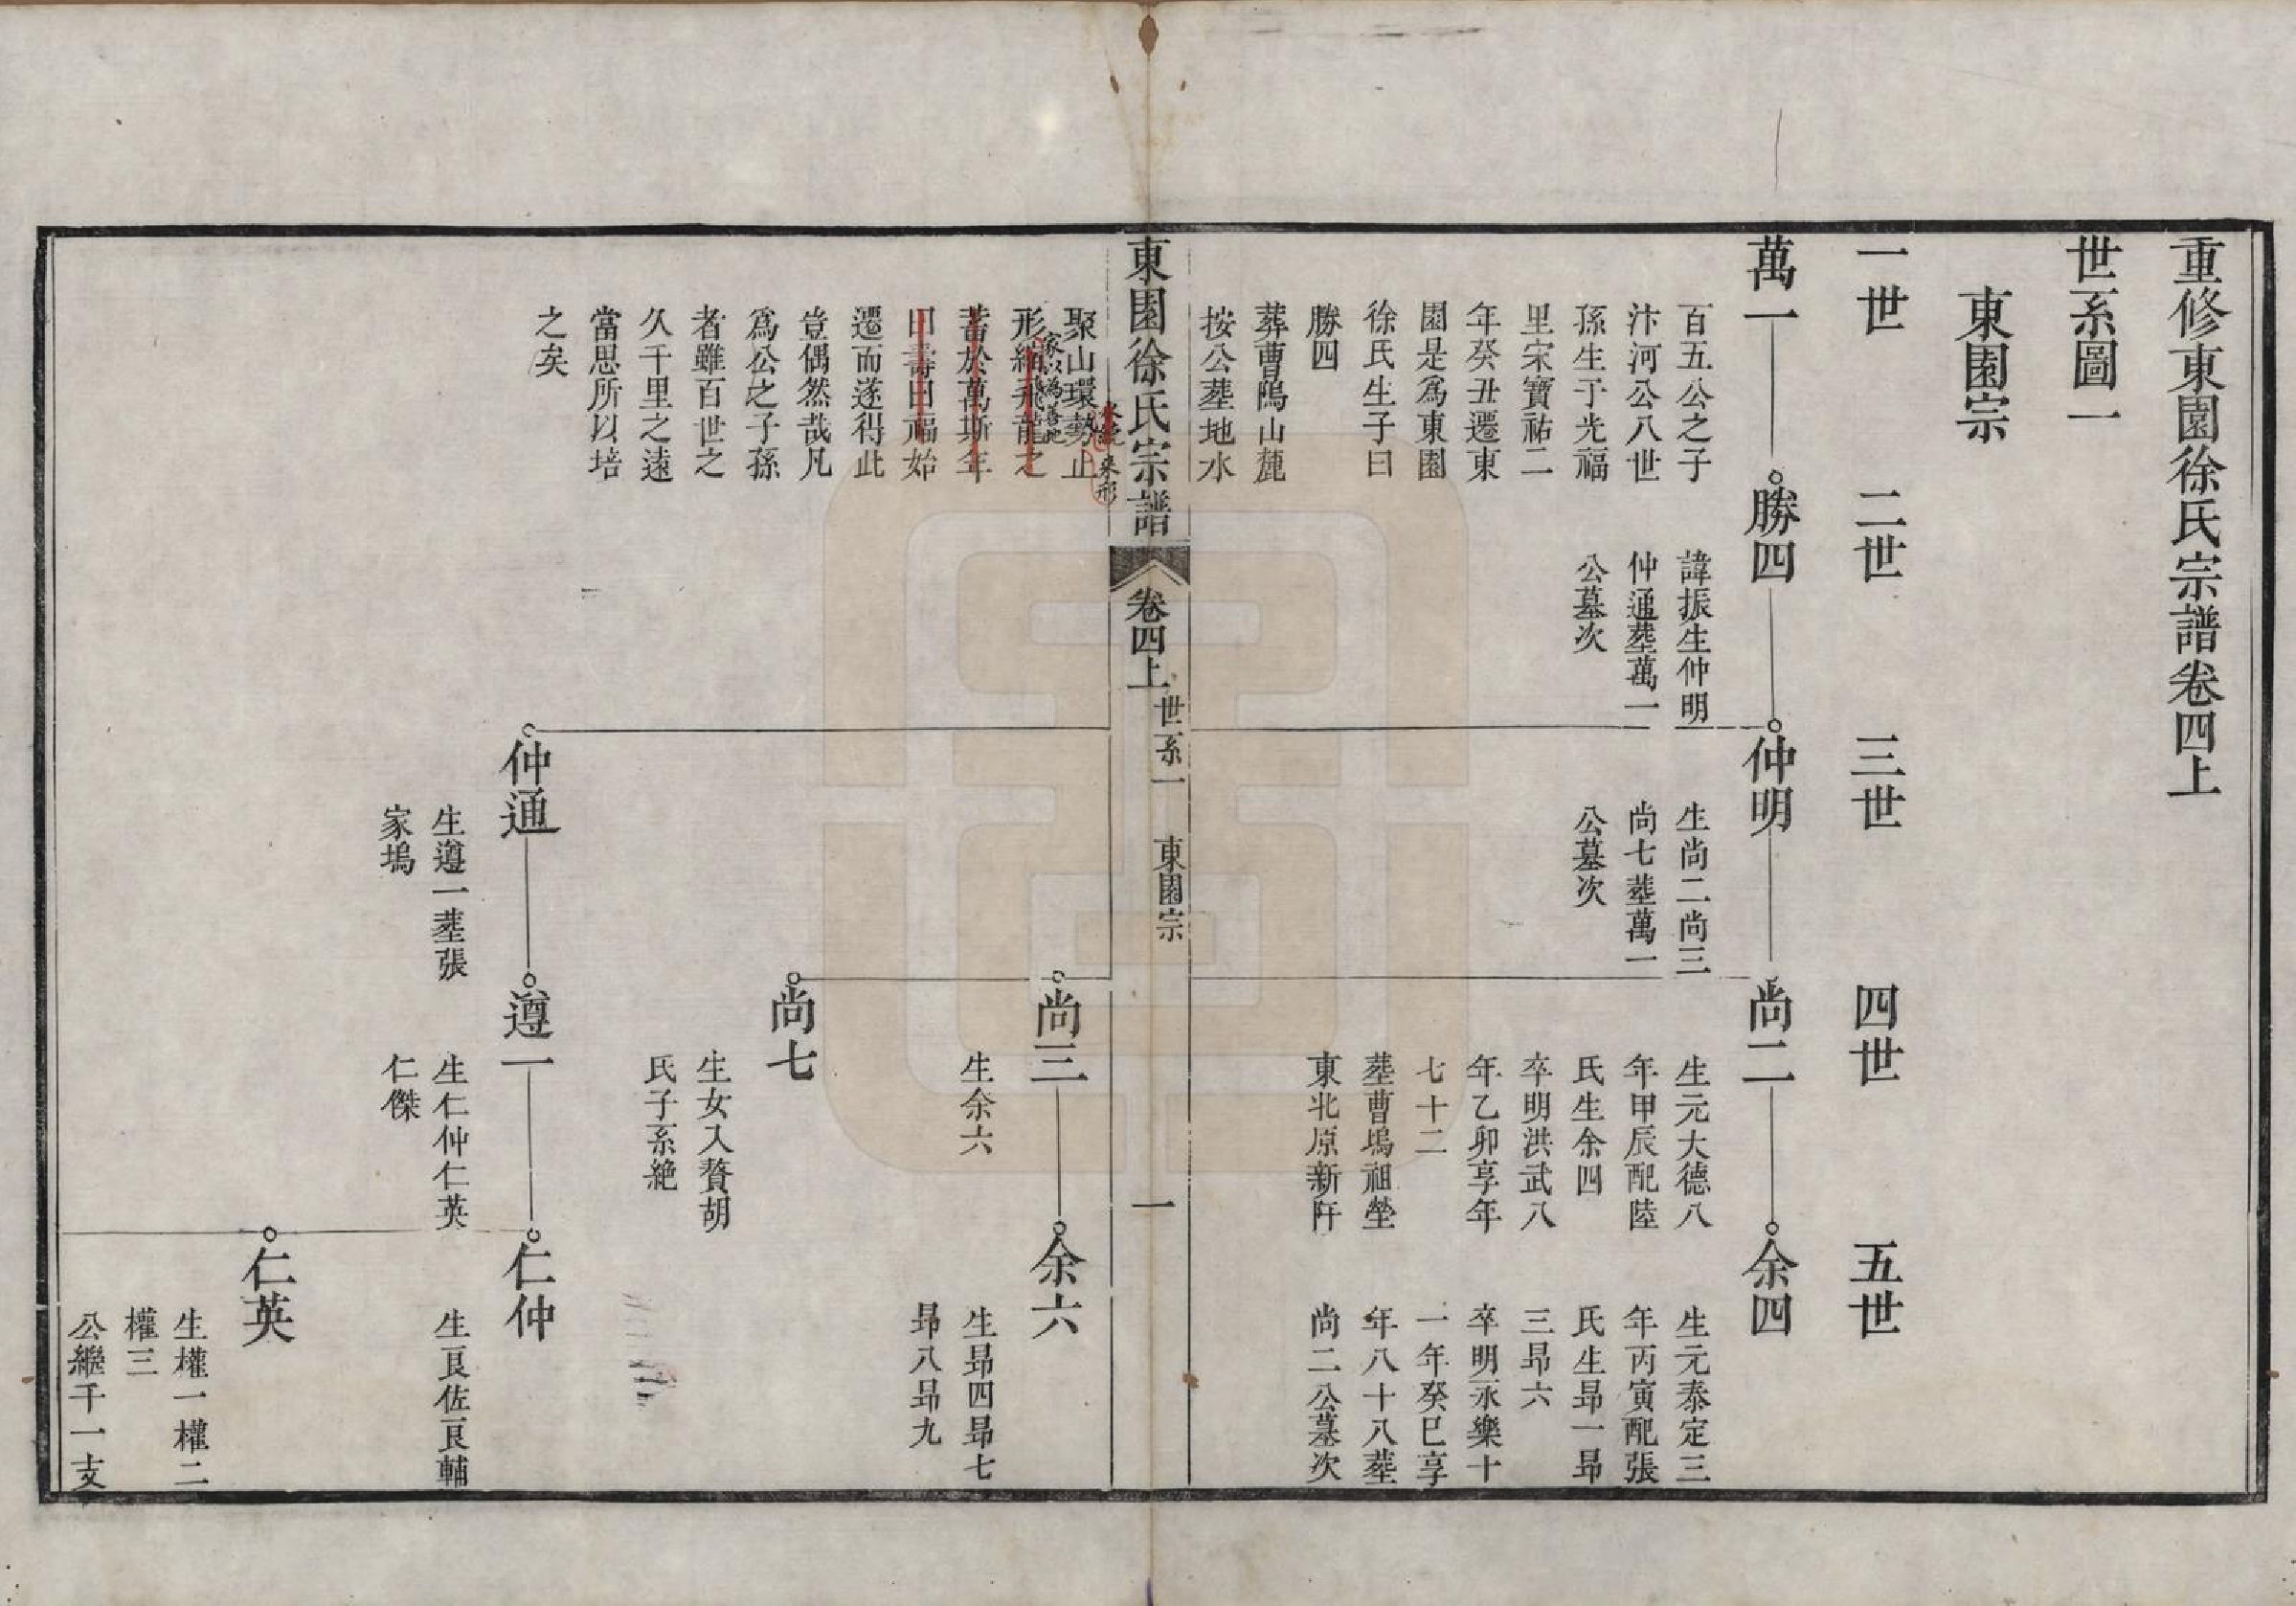 重修東園徐氏宗譜卷四上
世系圖一
東園宗
一世
二世
三世
四世
五世
萬一
勝四
仲明
尚二
余四
百五公之子
汴河公八世
孫生于光福
里宋寶祐二
年癸丑遷東
園是爲東園
徐氏生子曰
勝四
葬曹隖山麓
按公葬地水
諱振生仲明
仲通葬萬一
公墓次
生尚二尚三
尚七葬萬一
公墓次
生元大德八
年甲辰配陸
氏生余四
卒明洪武八
年乙卯享年
七十二
葬曹塢祖塋
東北原新阡
生元泰定三
年丙寅配張
氏生昻一昻
三昻六
卒明永樂十
一年癸巳享
年八十八葬
尚二公墓次
東園徐氏宗譜
卷四上
世系一
東園宗
一
聚山環勢止
形繪飛龍之
蓄於萬斯年
曰壽曰福始
遷而遂得此
豈偶然哉凡
爲公之子孫
者雖百世之
久千里之遠
當思所以培
之矣
來形
尚三
余六
生余六
生昻四昻七
昻八昻九
尚七
生女入贅胡
氏子系絶
仲通
遵一
仁仲
生遵一葬張
家塢
生仁仲仁英
仁傑
生良佐良輔
仁英
生權一權二
權三
公繼千一支